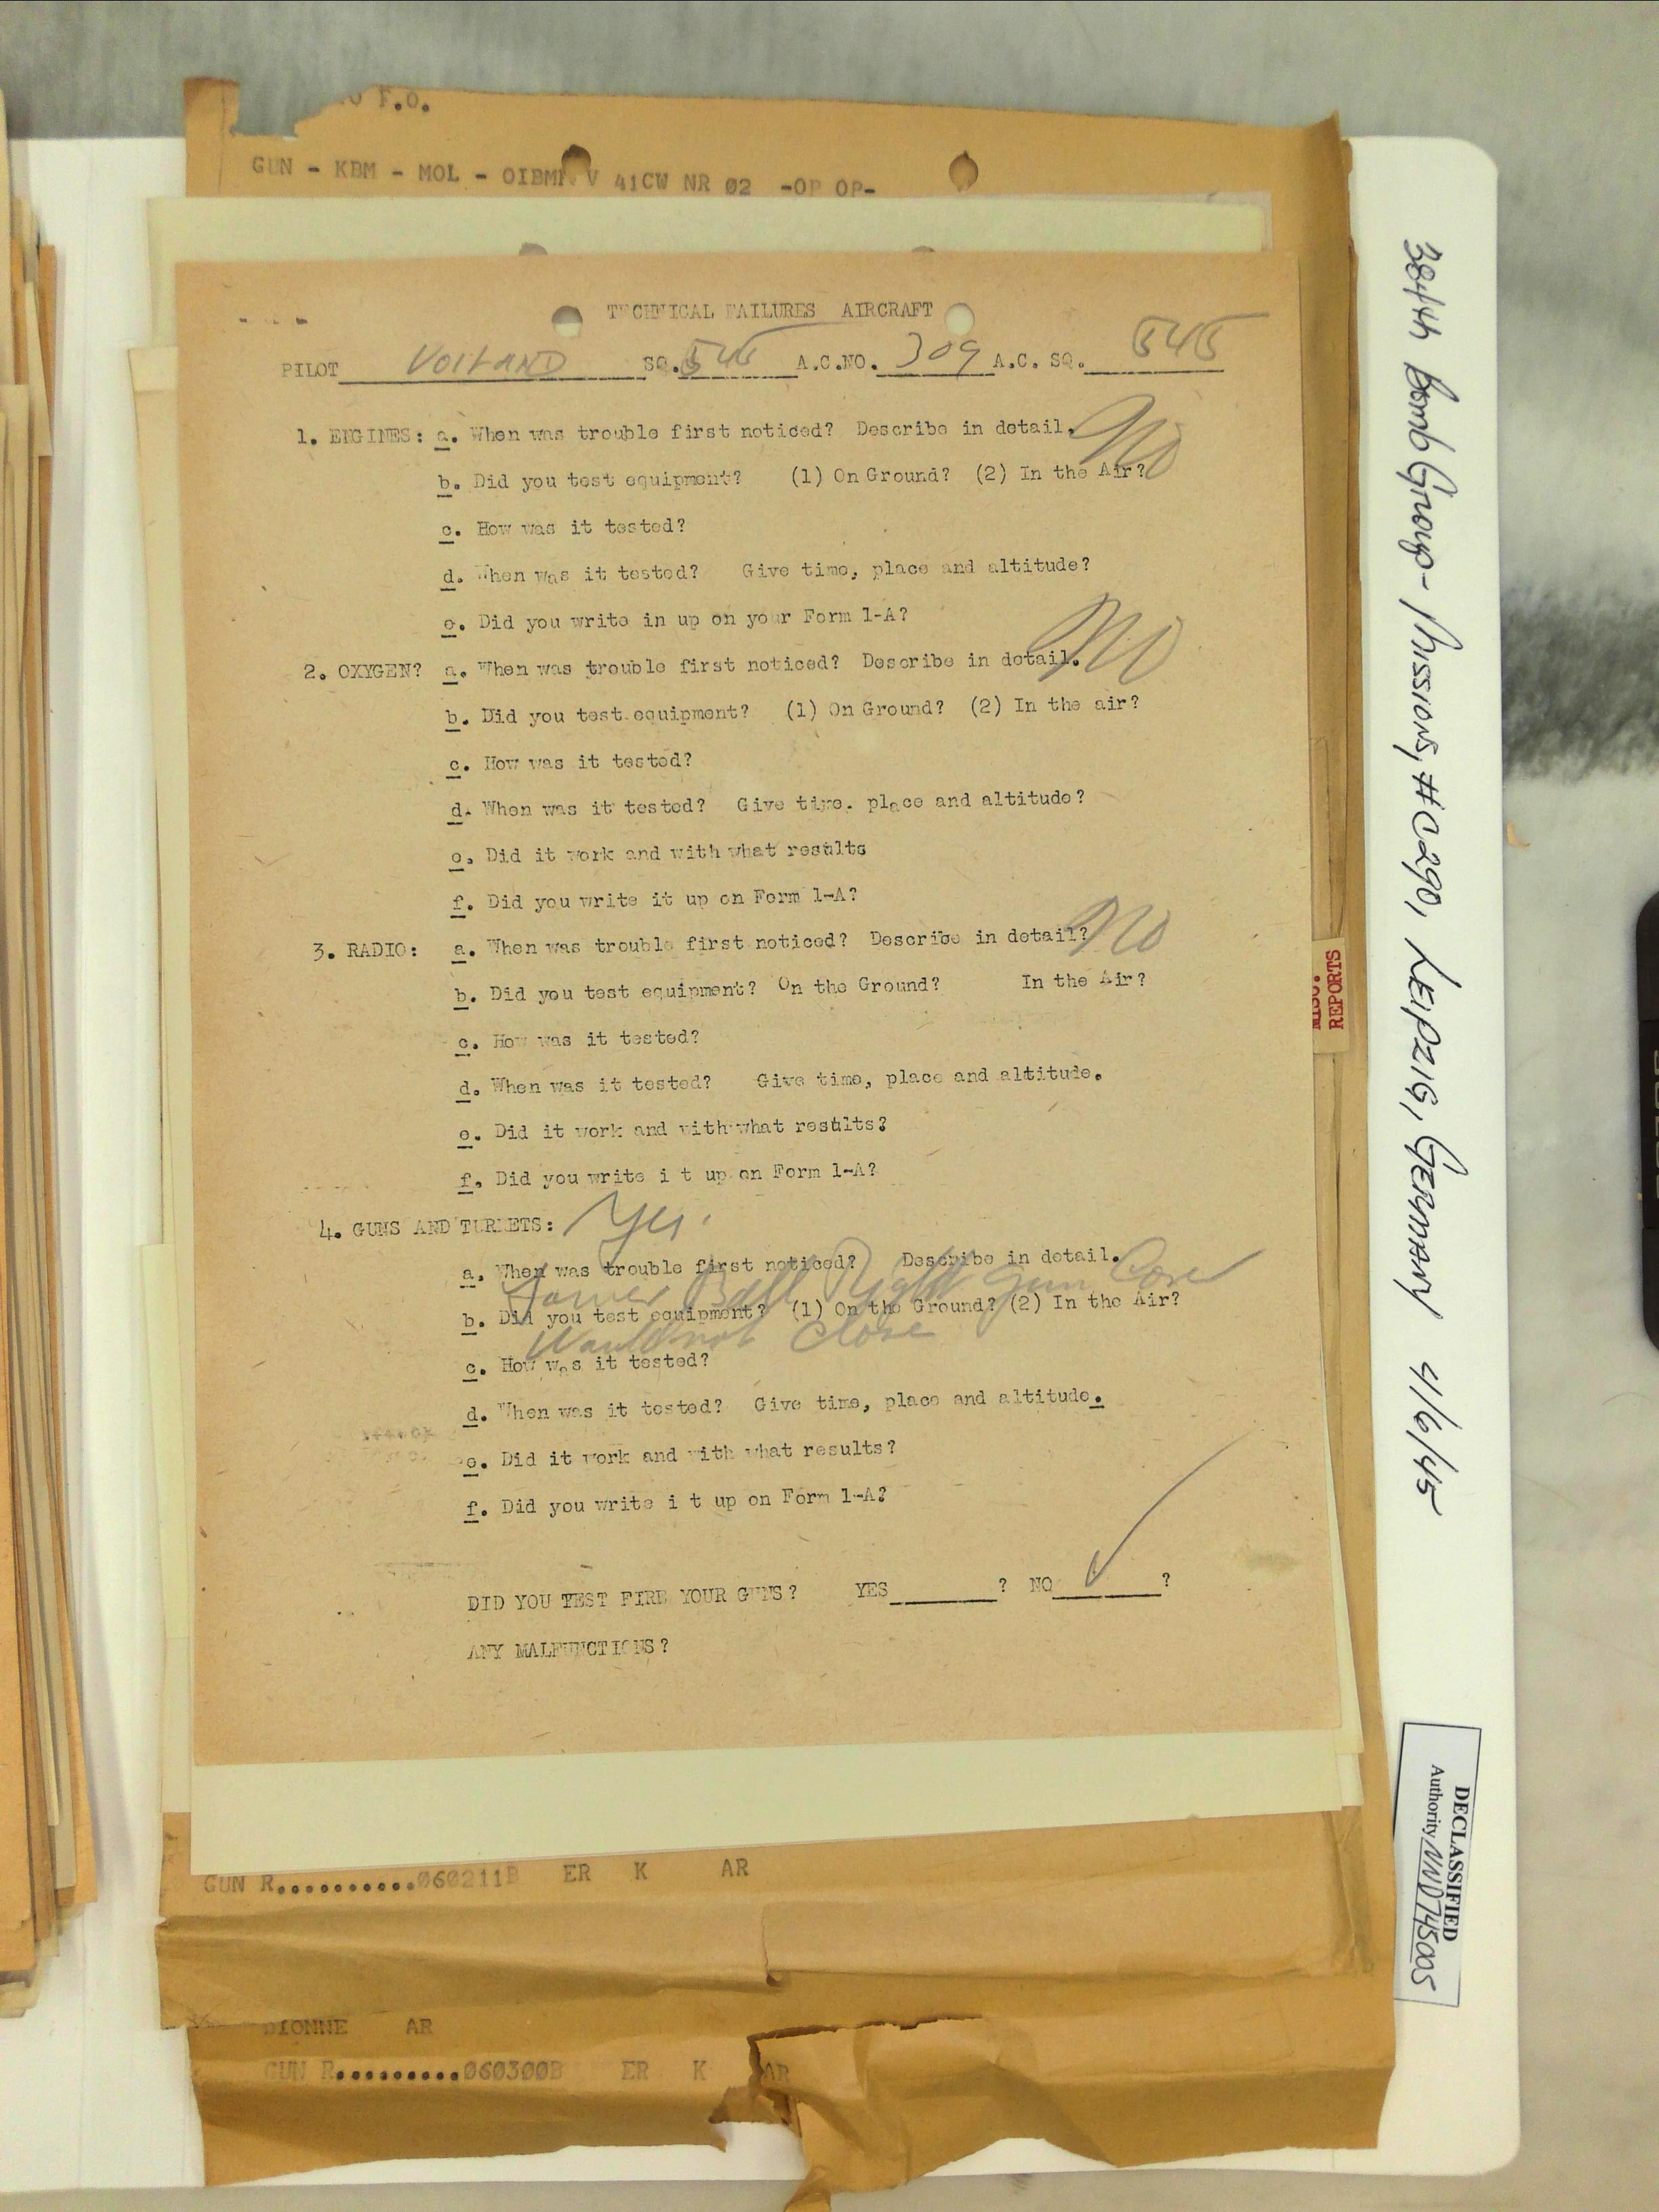 F.O.
GUN - KBM - MOL - OIBMN V 41CW NR 02 -OP OP-
TECHNICAL FAILURES AIRCRAFT
PILOT VOILAND SQ. 545 A.C.NO. 309 A.C. SQ. 545
1. ENGINES: a. When was trouble first noticed? Describe in detail. No
b. Did you test equipment? (1) On Ground? (2) In the Air?
c. How was it tested?
d. When was it tested? Give time, place and altitude?
e. Did you write in up on your Form 1-A?
2. OXYGEN? a. When was trouble first noticed? Describe in detail. NO
b. Did you test equipment? (1) On Ground? (2) In the air?
c. How was it tested?
d. When was it tested? Give time. place and altitude?
e. Did it work and with what results
f. Did you write it up on Form 1-A?
3. RADIO: a. When was trouble first noticed? Describe in detail? NO
b. Did you test equipment? On the Ground? In the Air?
c. How was it tested?
d. When was it tested? Give time, place and altitude.
e. Did it work and with what results?
f. Did you write i t up on Form 1-A?
4. GUNS AND TURRETS: Yes.
a. When was trouble first noticed? Describe in detail.
Lower Ball Right Gun Cover
b. Did you test equipment? (1) On the Ground? (2) In the Air?
Would not Close
c. How was it tested?
d. When was it tested? Give time, place and altitude.
e. Did it work and with what results?
f. Did you write i t up on Form 1-A?
DID YOU TEST FIRE YOUR GUNS? YES ? NO ✓ ?
ANY MALFUNCTIONS?
GUN R..........060211B ER K AR
DIONNE AR
GUN R..........060300B ER K AR
MISC. REPORTS
384th Bomb Group - Missions, #C290, LEIPZIG, GERMANY 4/6/45
DECLASSIFIED
Authority NND745005